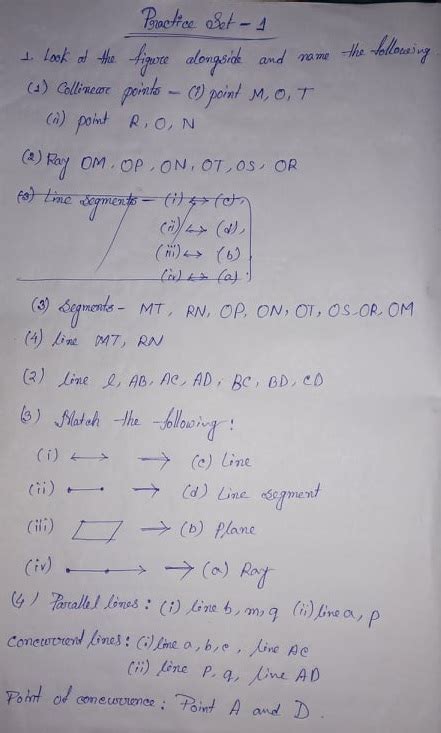 Practice Set - 1
1. Look at the figure alongside and name the following
(1) Collinear points - (i) point M, O, T
(ii) point R, O, N
(2) Ray OM, OP, ON, OT, OS, OR
(3) Line segments - (i) ↔ (c),
(ii) ↔ (d),
(iii) ↔ (b)
(iv) ↔ (a).
(3) Segments - MT, RN, OP, ON, OT, OS, OR, OM
(4) line MT, RN
(2) line l, AB, AC, AD, BC, BD, CD
(3) Match the following:
(i) ↔ → (c) Line
(ii) → (d) Line segment
(iii) → (b) Plane
(iv) → (a) Ray
(4) Parallel lines: (i) line b, m, q (ii) line a, p
Concurrent lines: (i) line a, b, c, line AC
(ii) line p, q, line AD
Point of concurrence: Point A and D.